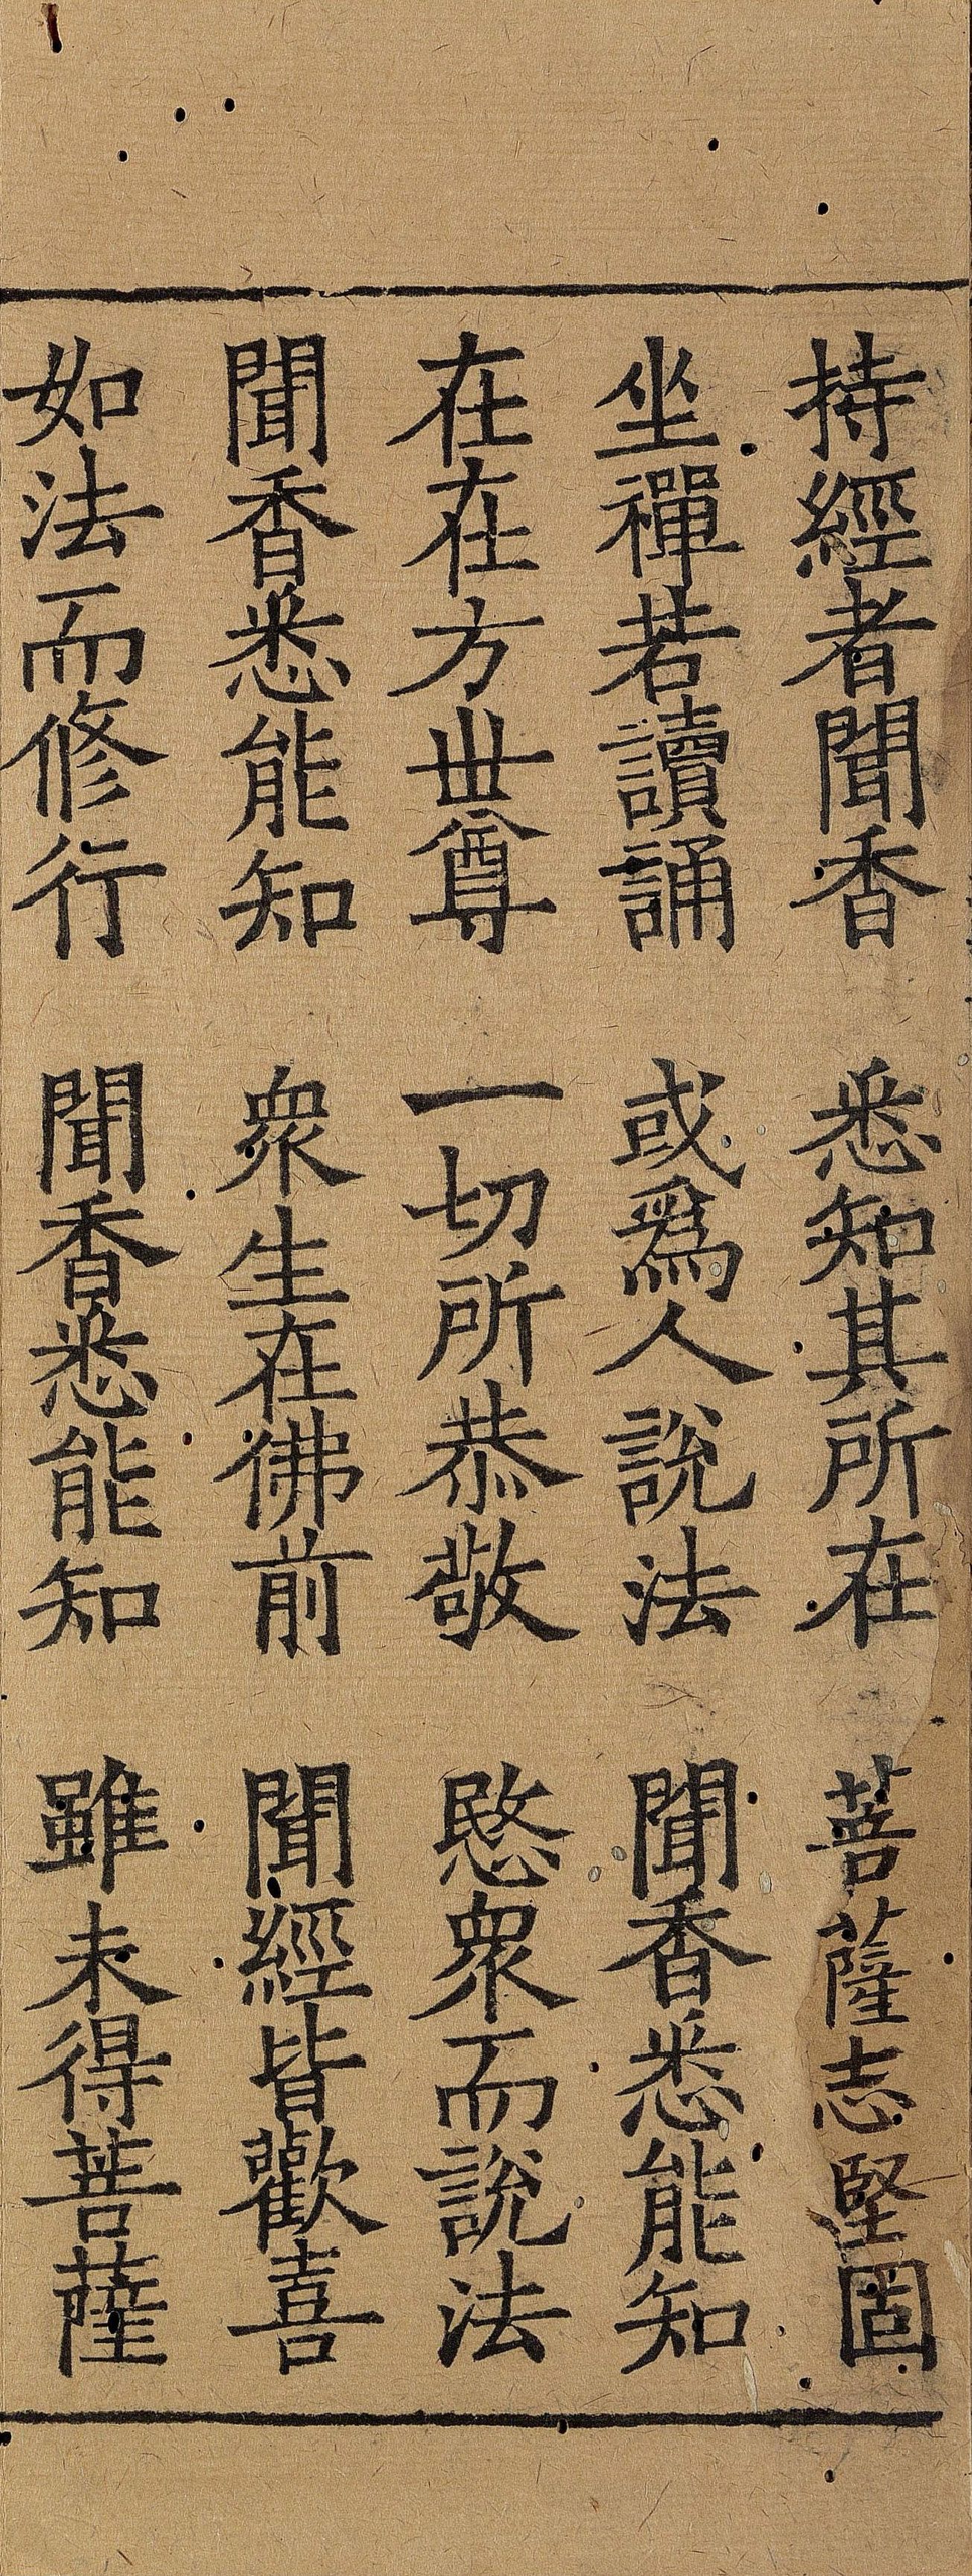 持經者聞香　悉知其所在　菩薩志堅固
坐禪若讀誦　或爲人說法　聞香悉能知
在在方世尊　一切所恭敬　愍衆而說法
聞香悉能知　衆生在佛前　聞經皆歡喜
如法而修行　聞香悉能知　雖未得菩薩